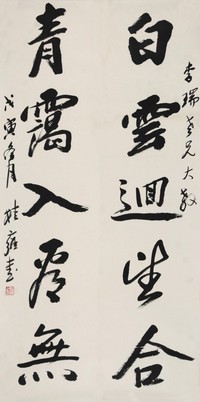 李瑞兄大教
白雲迴望合
青靄入看無
戊寅冬月 桂雍書